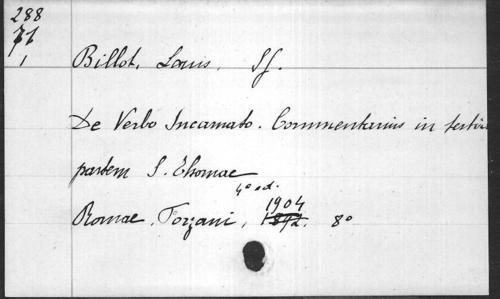 288
77
1
Billot, Louis, SJ.
De Verbo Incarnato. Commentarius in tertia
partem S. Thomae
4º ed.
1904
Romae, Forzani, 1892. 8º